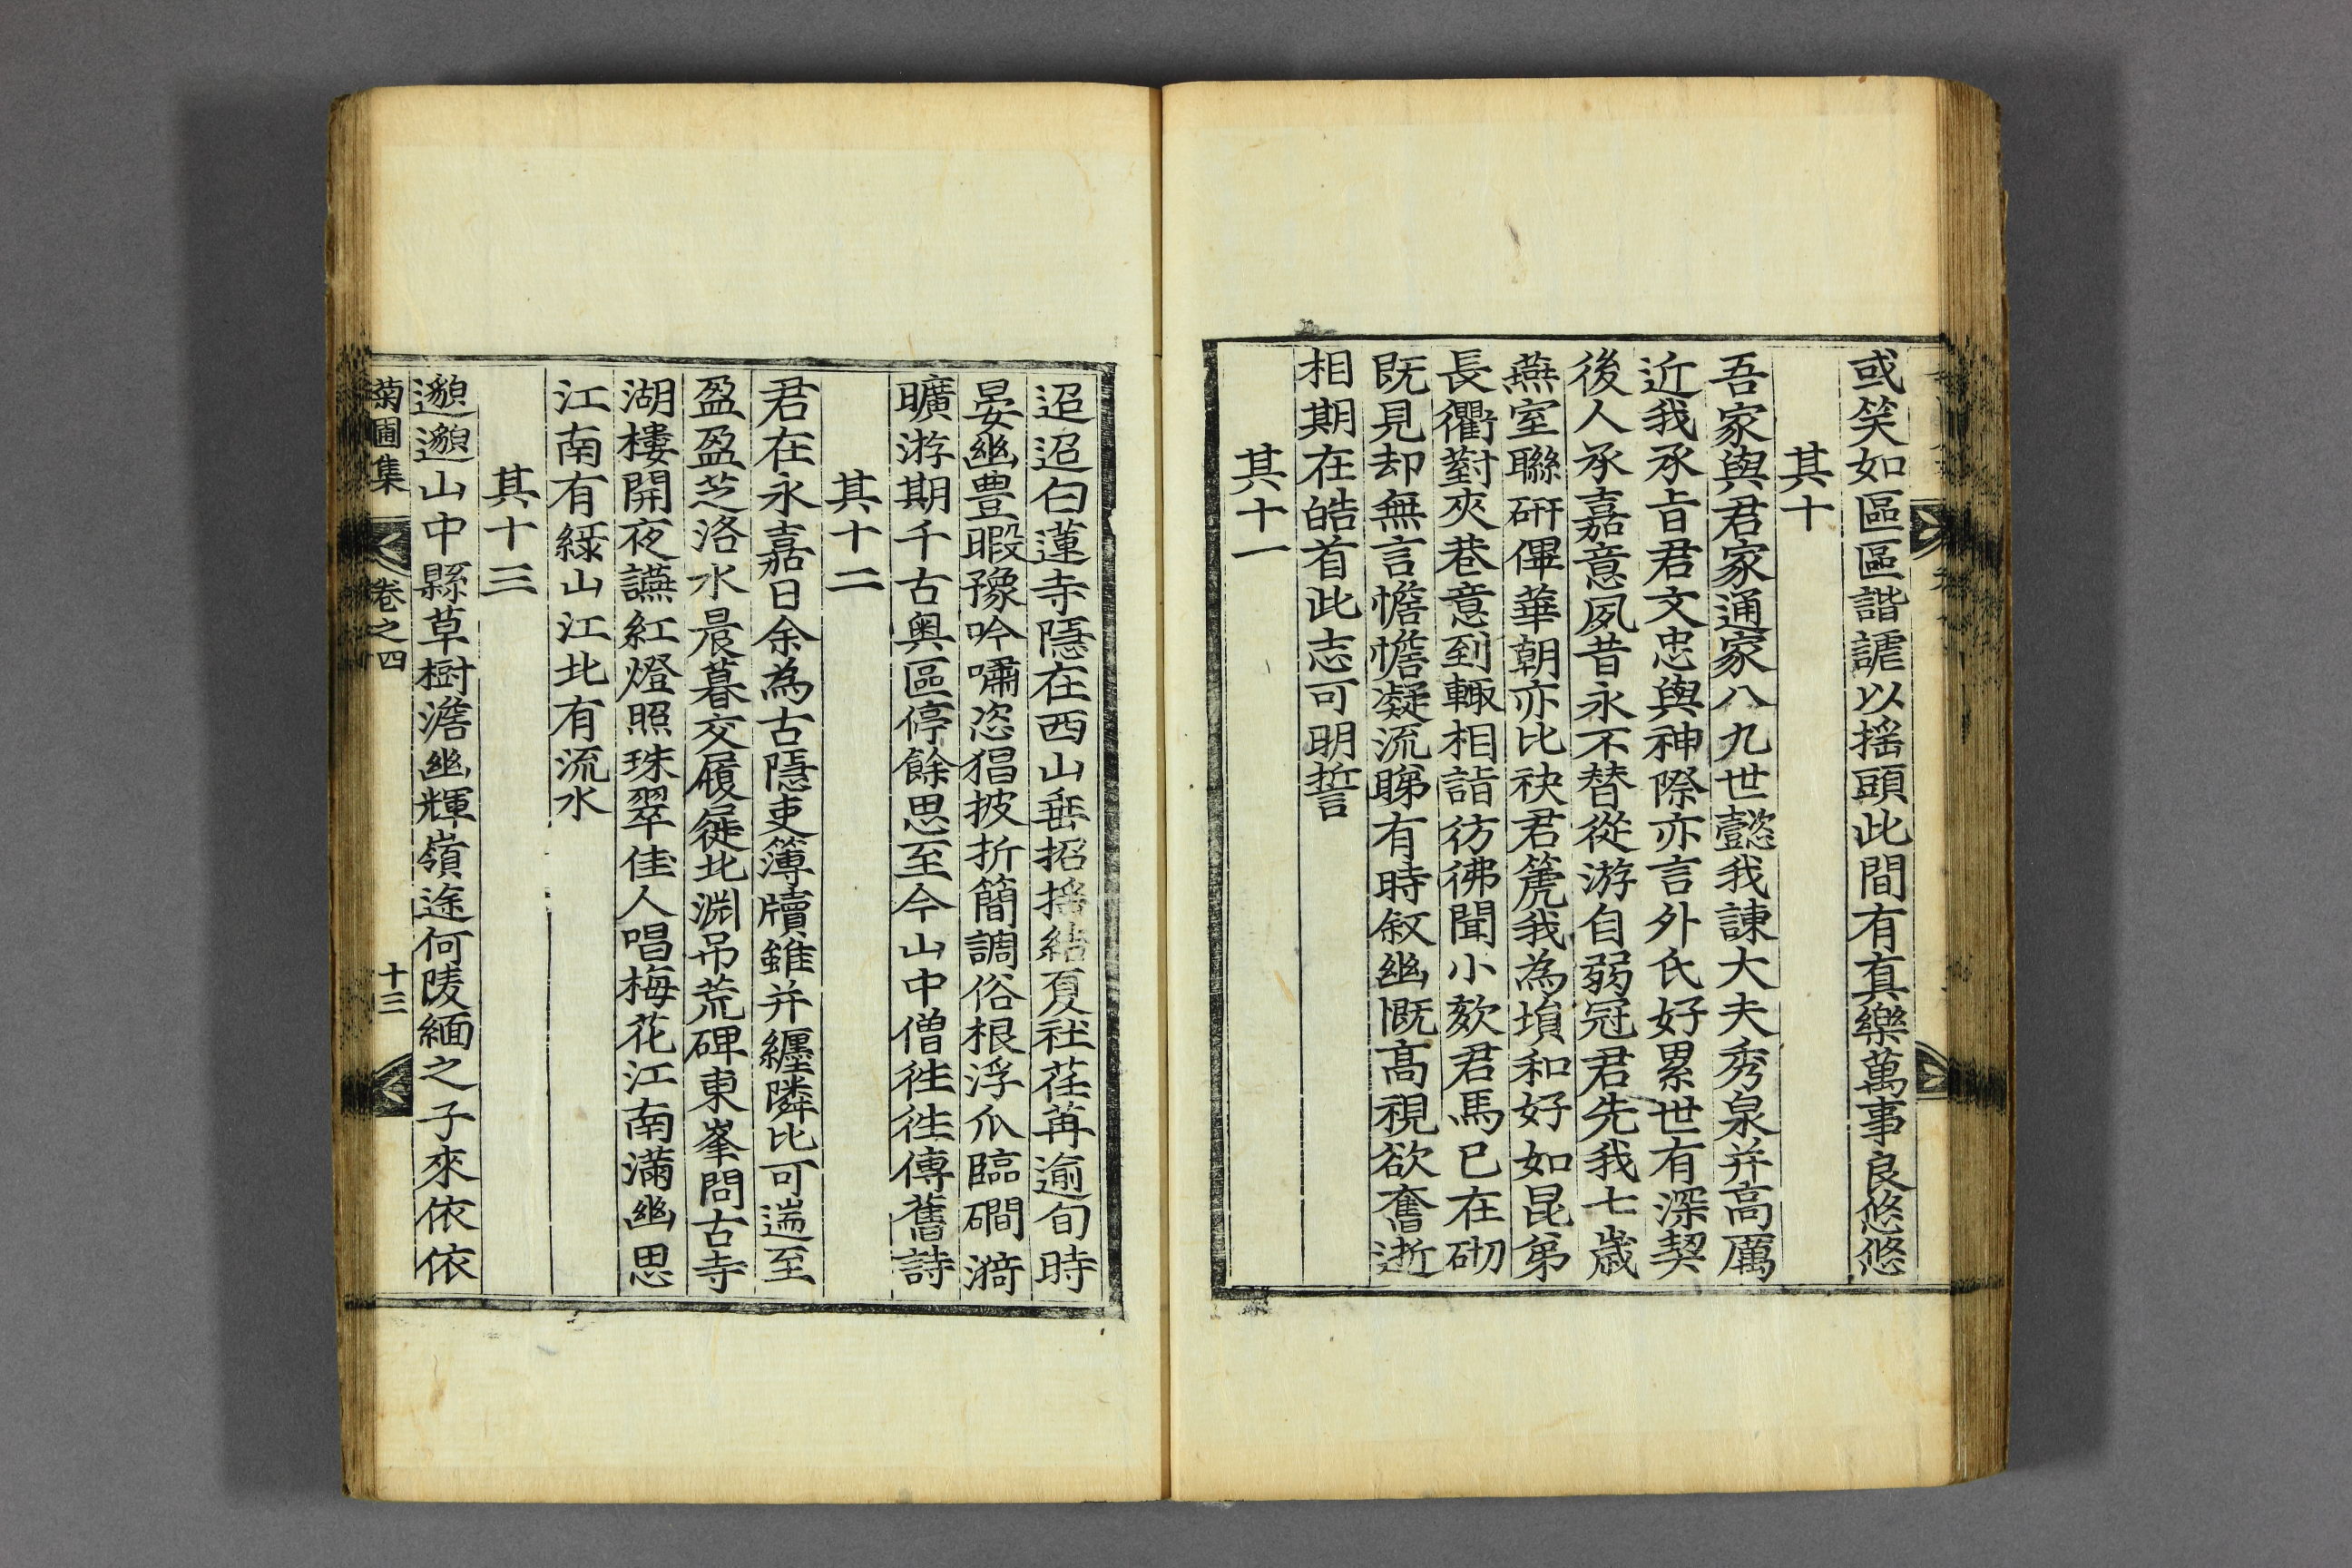 或笑如區區諧謔以搖頭此間有真樂萬事良悠悠
其十
吾家與君家通家八九世懿我諫大夫秀泉并高厲
近我承旨君文忠與神際亦言外氏好累世有深契
後人承嘉意夙昔永不替從游自弱冠君先我七歲
燕室聯硏僤華朝亦比袂君篪我為塤和好如昆弟
長衢對夾巷意到輙相詣彷彿聞小欬君馬已在砌
既見却無言憺憺凝流睇有時叙幽慨高視欲奮逝
相期在皓首此志可明誓
其十一
迢迢白蓮寺隱在西山垂招搖結夏社荏苒逾旬時
晏幽豊暇豫吟嘯恣猖披折簡調俗根浮瓜臨磵漪
曠游期千古奧區停餘思至今山中僧徃徃傳舊詩
其十二
君在永嘉日余為古隱吏簿牘雖并纏隣比可遄至
盈盈芝洛水晨暮交履屣北淵吊荒碑東峯問古寺
湖樓開夜讌紅燈照珠翠佳人唱梅花江南滿幽思
江南有綠山江北有流水
其十三
邈邈山中縣草樹澹幽輝嶺途何陵緬之子來依依
菊圃集 卷之四 十三